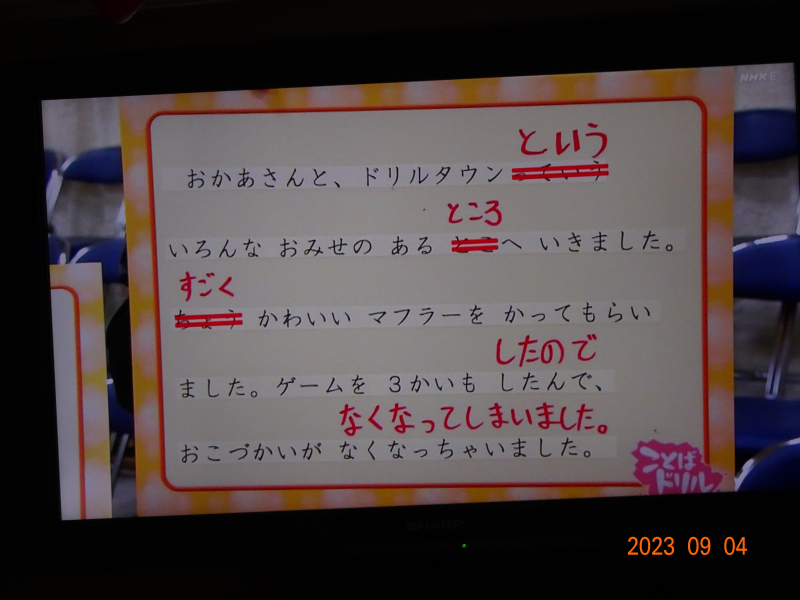 NHK E
という
おかあさんと、ドリルタウンっていう
ところ
いろんな おみせの ある とこへ いきました。
すごく
ちょう かわいい マフラーを かってもらい
したので
ました。ゲームを 3かいも したんで、
なくなってしまいました。
おこづかいが なくなっちゃいました。
ことば
ドリル
SHARP
2023 09 04